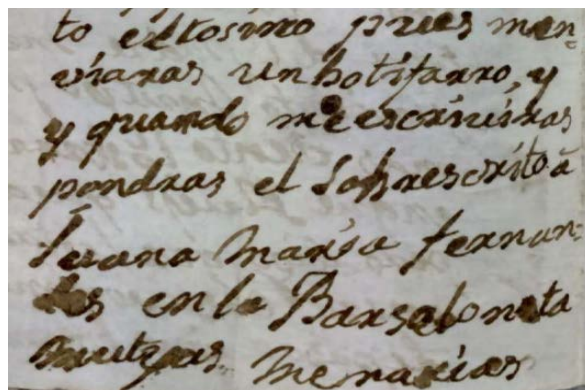 to eltosino pues men=
viaras un botifarro, y
y quando me escriviras
pondras el sobrescrito â
Juana Maria fernan=
des en la Barsaloneta